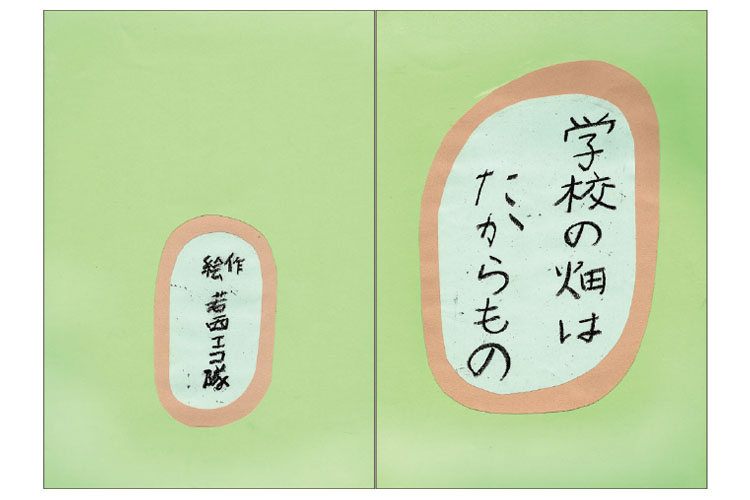 学校の畑は
たからもの
作
絵 若西エコ隊